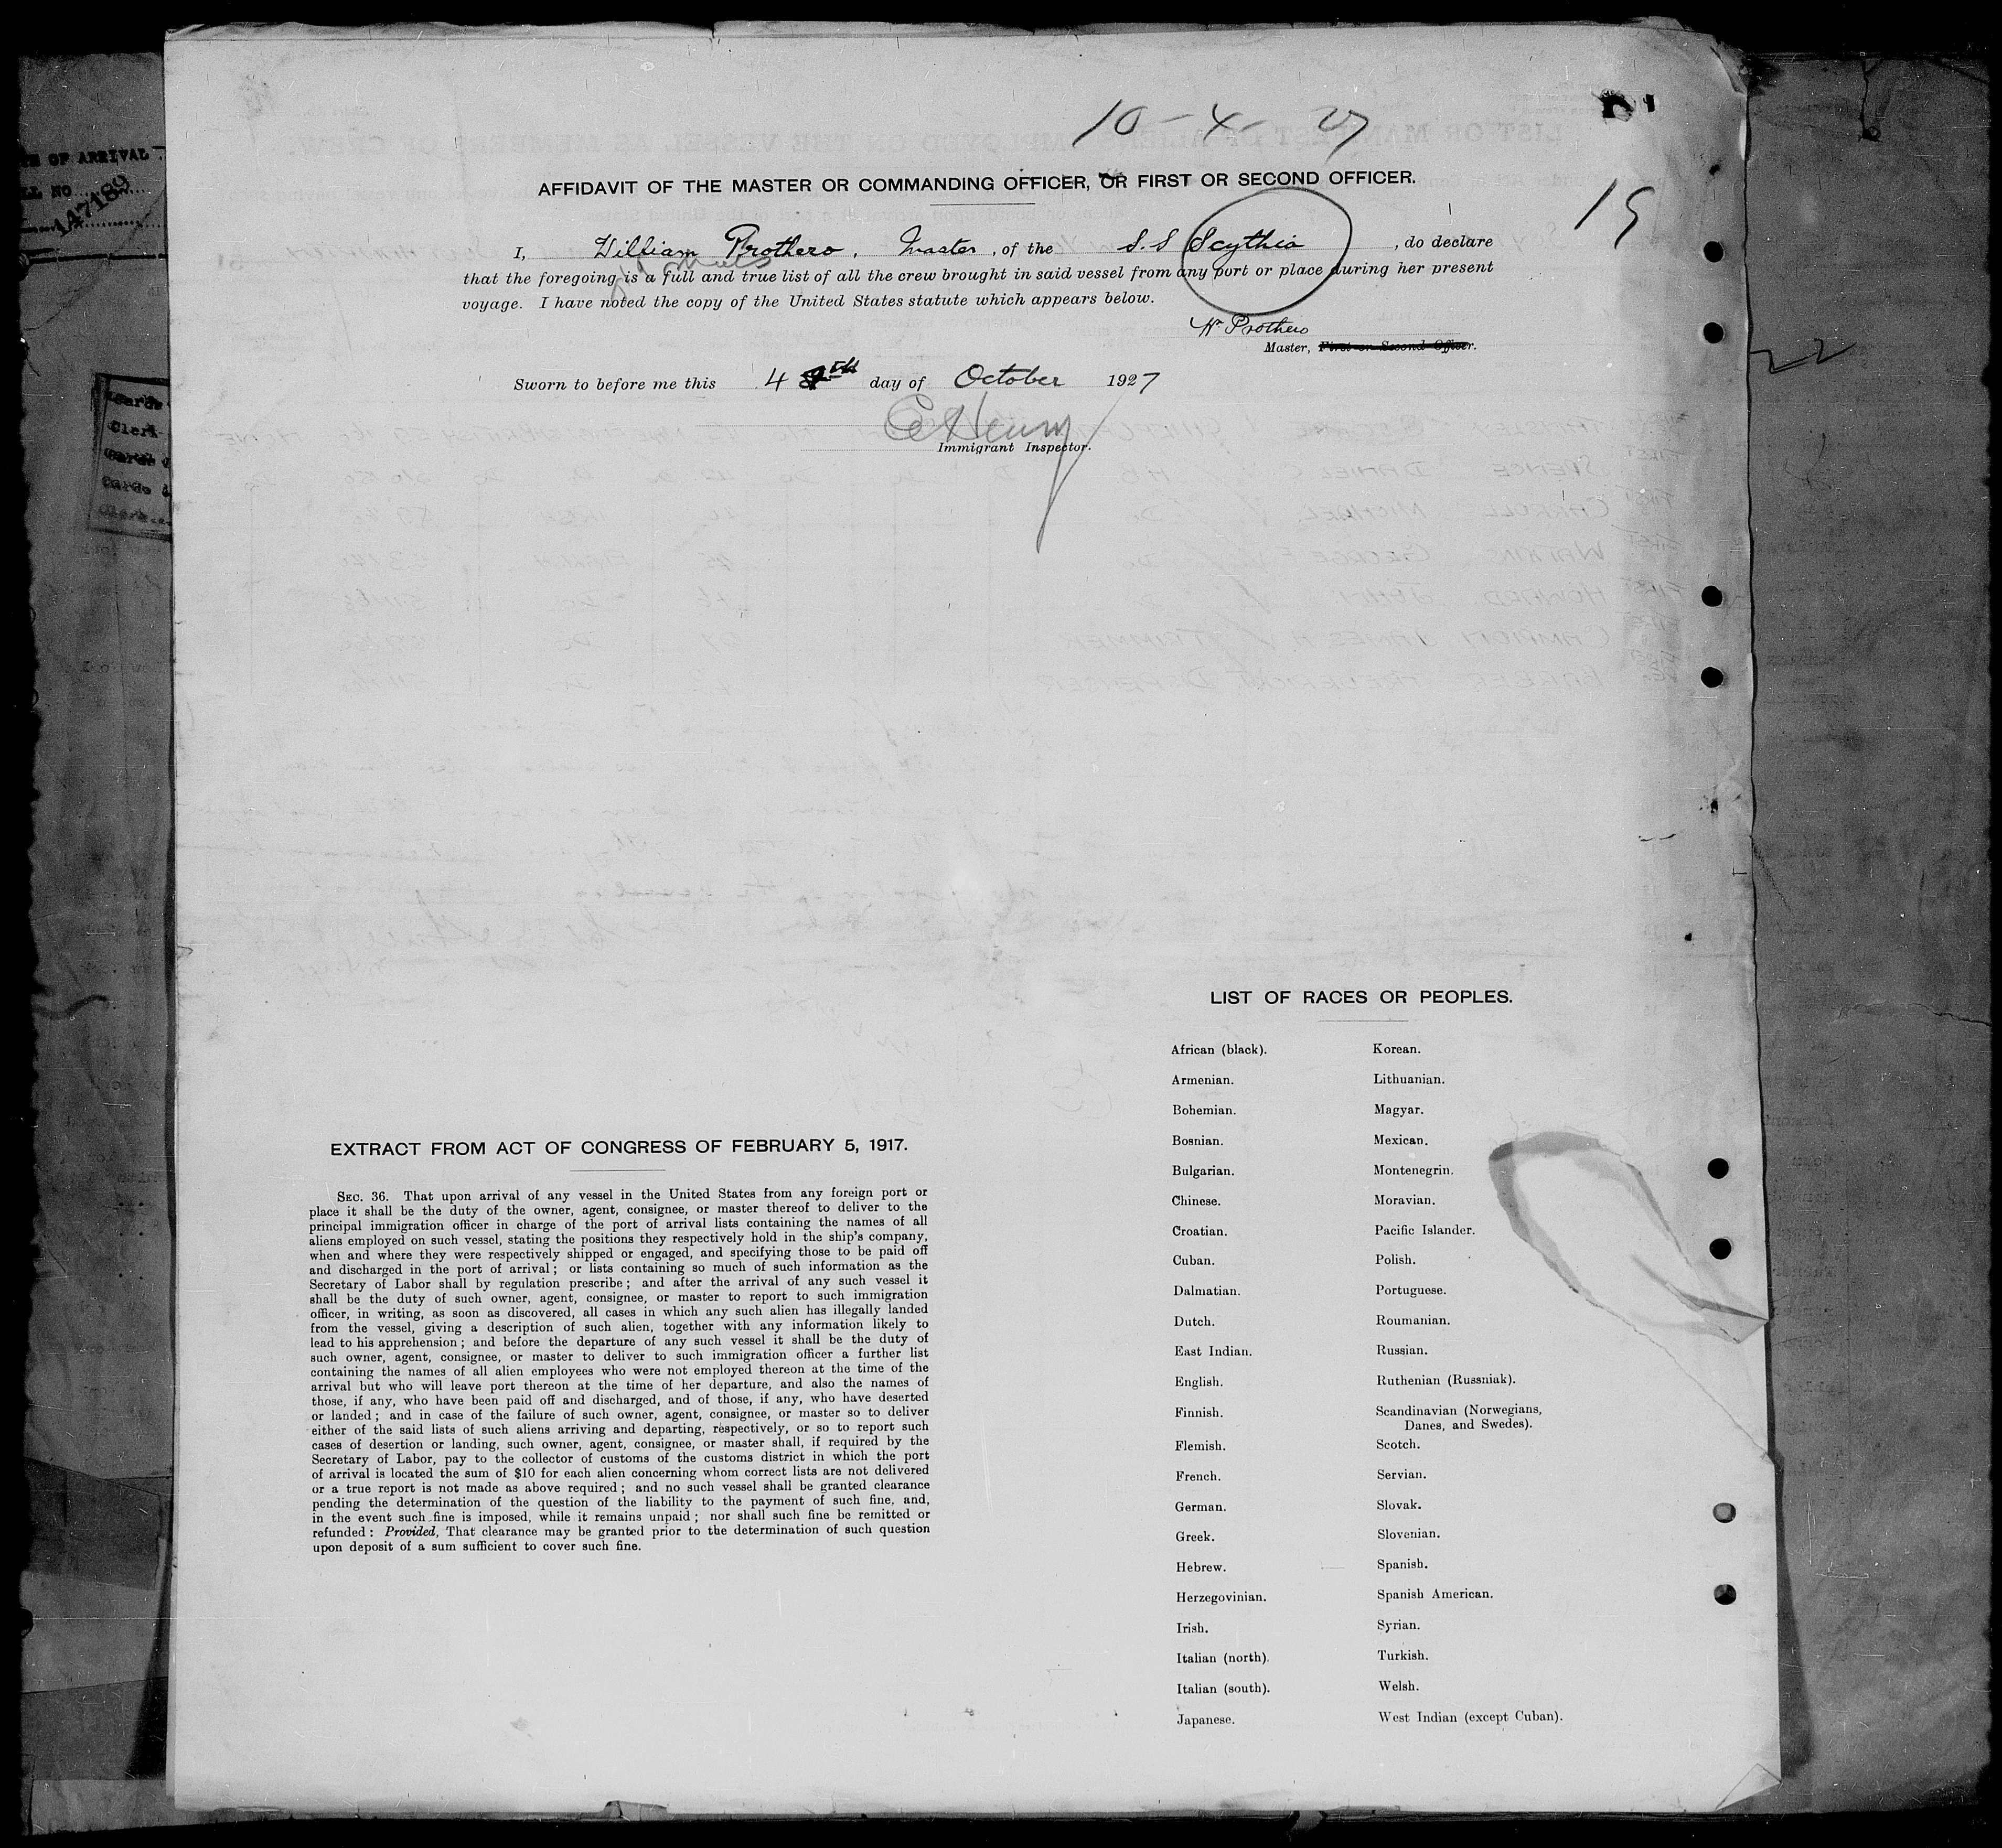 10-4-27
AFFIDAVIT OF THE MASTER OR COMMANDING OFFICER, OR FIRST OR SECOND OFFICER.
19
I, William Prothero, Master, of the S.S Scythia, do declare
that the foregoing is a full and true list of all the crew brought in said vessel from any port or place during her present
voyage. I have noted the copy of the United States statute which appears below.
Wm Prothero
Master, First or Second Officer.
Sworn to before me this 4 th day of October 1927
Immigrant Inspector.
OF ARRIVAL
NO
147189
Clerk
22
LIST OF RACES OR PEOPLES.
African (black). Korean.
Armenian. Lithuanian.
Bohemian. Magyar.
Bosnian. Mexican.
Bulgarian. Montenegrin.
Chinese. Moravian.
Croatian. Pacific Islander.
Cuban. Polish.
Dalmatian. Portuguese.
Dutch. Roumanian.
East Indian. Russian.
English. Ruthenian (Russniak).
Finnish. Scandinavian (Norwegians,
Danes, and Swedes).
Flemish. Scotch.
French. Servian.
German. Slovak.
Greek. Slovenian.
Hebrew. Spanish.
Herzegovinian. Spanish American.
Irish. Syrian.
Italian (north). Turkish.
Italian (south). Welsh.
Japanese. West Indian (except Cuban).
EXTRACT FROM ACT OF CONGRESS OF FEBRUARY 5, 1917.
SEC. 36. That upon arrival of any vessel in the United States from any foreign port or
place it shall be the duty of the owner, agent, consignee, or master thereof to deliver to the
principal immigration officer in charge of the port of arrival lists containing the names of all
aliens employed on such vessel, stating the positions they respectively hold in the ship's company,
when and where they were respectively shipped or engaged, and specifying those to be paid off
and discharged in the port of arrival; or lists containing so much of such information as the
Secretary of Labor shall by regulation prescribe; and after the arrival of any such vessel it
shall be the duty of such owner, agent, consignee, or master to report to such immigration
officer, in writing, as soon as discovered, all cases in which any such alien has illegally landed
from the vessel, giving a description of such alien, together with any information likely to
lead to his apprehension; and before the departure of any such vessel it shall be the duty of
such owner, agent, consignee, or master to deliver to such immigration officer a further list
containing the names of all alien employees who were not employed thereon at the time of the
arrival but who will leave port thereon at the time of her departure, and also the names of
those, if any, who have been paid off and discharged, and of those, if any, who have deserted
or landed; and in case of the failure of such owner, agent, consignee, or master so to deliver
either of the said lists of such aliens arriving and departing, respectively, or so to report such
cases of desertion or landing, such owner, agent, consignee, or master shall, if required by the
Secretary of Labor, pay to the collector of customs of the customs district in which the port
of arrival is located the sum of $10 for each alien concerning whom correct lists are not delivered
or a true report is not made as above required; and no such vessel shall be granted clearance
pending the determination of the question of the liability to the payment of such fine, and,
in the event such fine is imposed, while it remains unpaid; nor shall such fine be remitted or
refunded: Provided, That clearance may be granted prior to the determination of such question
upon deposit of a sum sufficient to cover such fine.